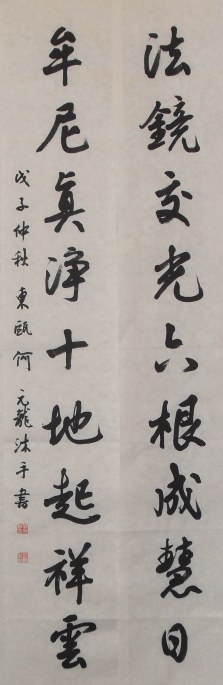 法鏡交光六根成慧日
牟尼真淨十地起祥雲
戊子仲秋東甌何元龍沐手書